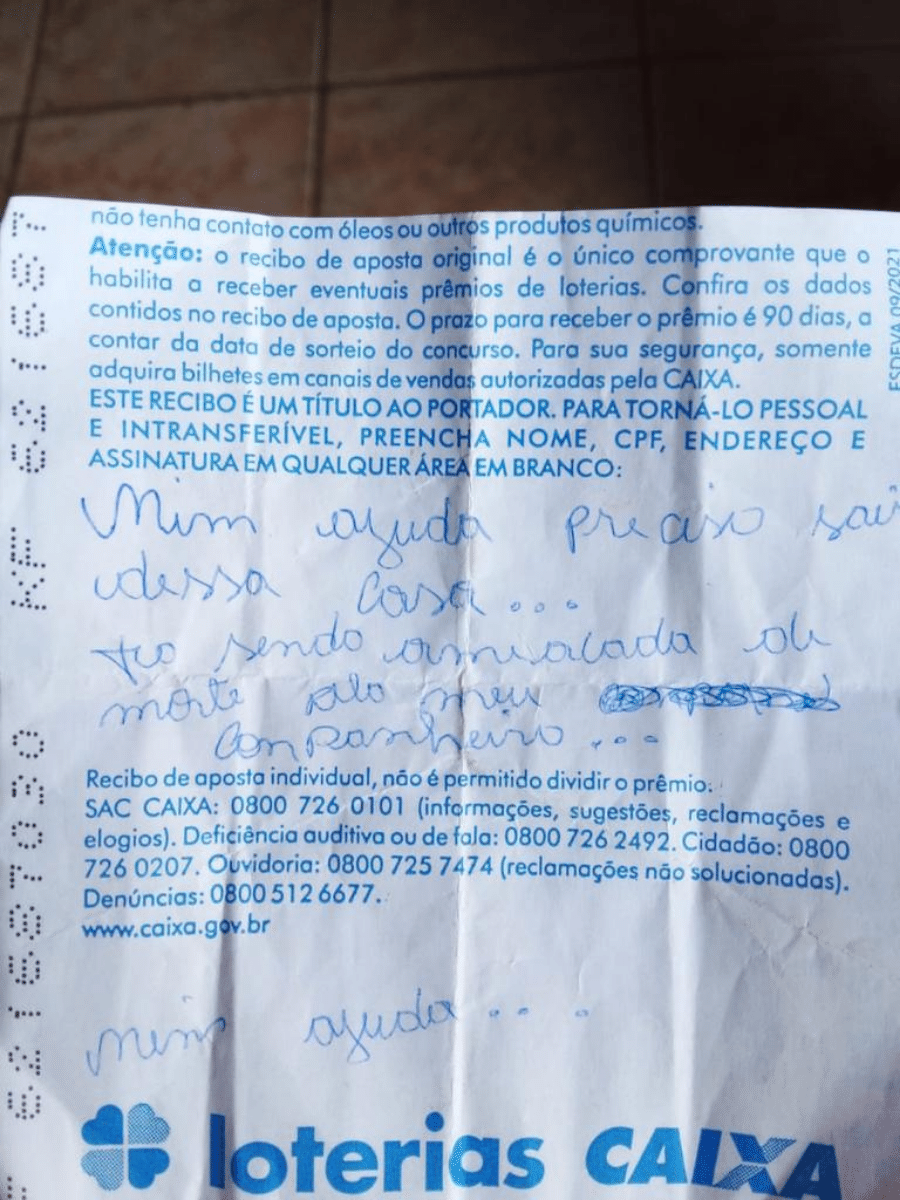 não tenha contato com óleos ou outros produtos químicos.
Atenção: o recibo de aposta original é o único comprovante que o
habilita a receber eventuais prêmios de loterias. Confira os dados
contidos no recibo de aposta. O prazo para receber o prêmio é 90 dias, a
contar da data de sorteio do concurso. Para sua segurança, somente
adquira bilhetes em canais de vendas autorizadas pela CAIXA.
ESTE RECIBO É UM TÍTULO AO PORTADOR. PARA TORNÁ-LO PESSOAL
E INTRANSFERÍVEL, PREENCHA NOME, CPF, ENDEREÇO E
ASSINATURA EM QUALQUER ÁREA EM BRANCO:
Mim ajuda preciso sair
dessa casa...
tro sendo amialada de
morte pelo meu
companheiro...
Recibo de aposta individual, não é permitido dividir o prêmio.
SAC CAIXA: 0800 726 0101 (informações, sugestões, reclamações e
elogios). Deficiência auditiva ou de fala: 0800 726 2492. Cidadão: 0800
726 0207. Ouvidoria: 0800 725 7474 (reclamações não solucionadas).
Denúncias: 0800 512 6677.
www.caixa.gov.br
mim ajuda...
loterias CAIXA
ESDEVA 09/2021